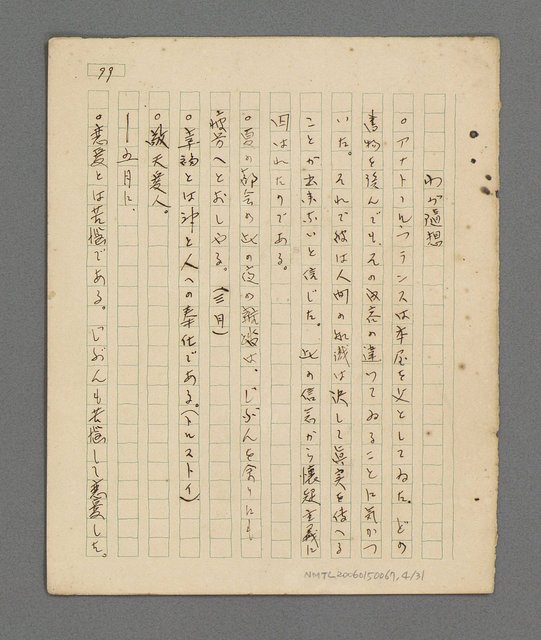 99
わが随想
○アナトール・フランスは本屋を父としてゐた。どの
書物を読んでも、その内容の違つてゐることに気がつ
いた。それで彼は人間の知識は決して眞実を伝へる
ことが出来ないと信じた。此の信念から懐疑主義に
囚はれたのである。
○夏の都会の此の道の雑沓は、じぶんを余りにも
疲労へとおしやる。(三月)
○幸福とは神と人への奉仕である。(トルストイ)
○敬天愛人。
―五月に、
○恋愛とは苦悩である。じぶんも苦悩して恋愛した。
NMTL20060150067, 4/31